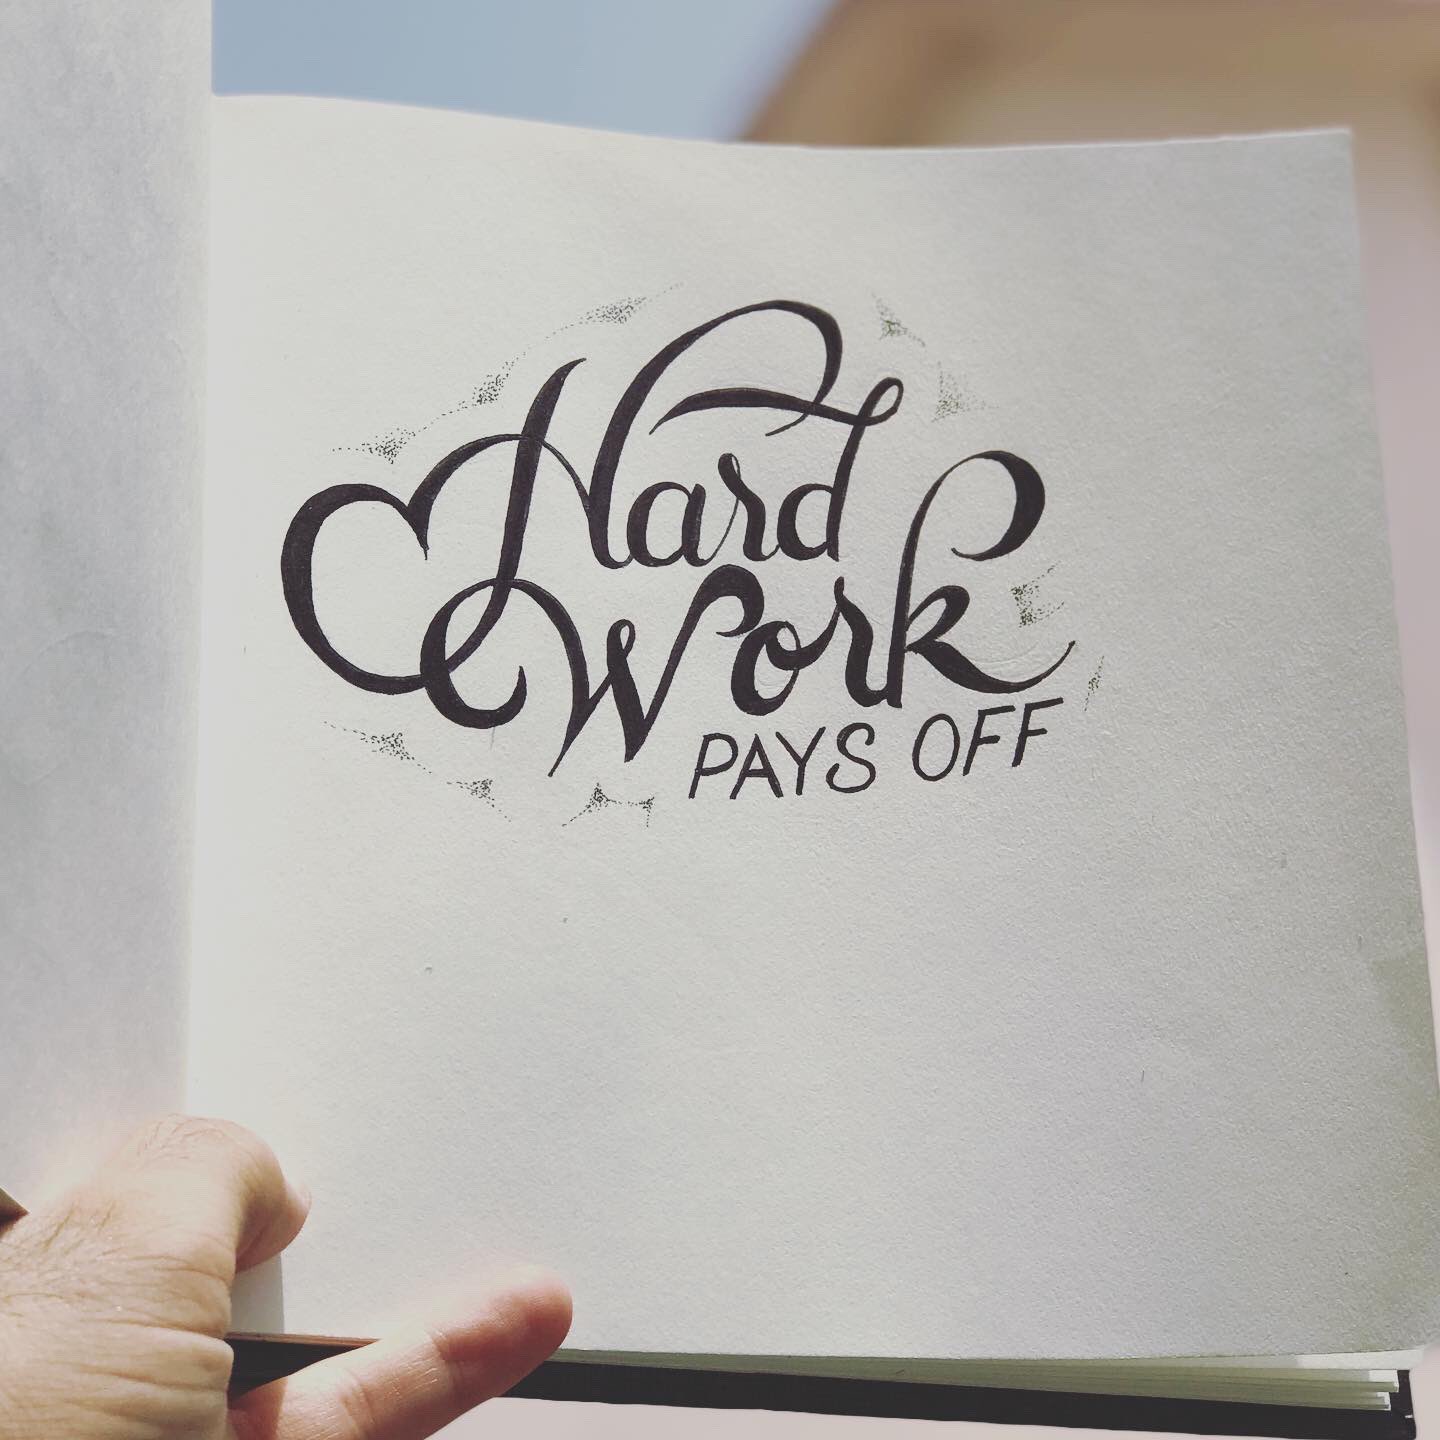 Hard
Work
PAYS OFF